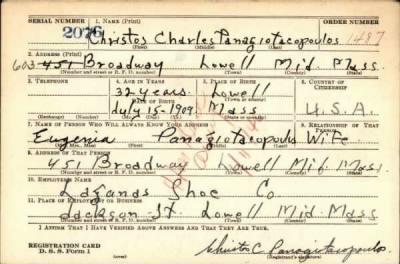 SERIAL NUMBER 1. NAME (Print) ORDER NUMBER
2076 Christos Charles Panagiotacopoulos 1487
(First) (Middle) (Last)
2. ADDRESS (Print)
603 451 Broadway Lowell Mid. Mass.
(Number and street or R. F. D. number) (Town) (County) (State)
3. TELEPHONE 4. AGE IN YEARS 5. PLACE OF BIRTH 6. COUNTRY OF CITIZENSHIP
32 years. Lowell
DATE OF BIRTH (Town or county)
July 15-1909. Mass U.S.A.
(Exchange) (No.) (Mo.) (Day) (Yr.) (State or country)
7. NAME OF PERSON WHO WILL ALWAYS KNOW YOUR ADDRESS 8. RELATIONSHIP OF THAT PERSON
Eugenia Panagiotacopouls Wife
(Mr., Mrs., Miss) (First) (Middle) (Last)
9. ADDRESS OF THAT PERSON
451 Broadway Lowell Mid. Mass.
(Number and street or R. F. D. number) (Town) (County) (State)
10. EMPLOYER'S NAME
Laganas Shoe Co
11. PLACE OF EMPLOYMENT OR BUSINESS
Jackson St. Lowell Mid. Mass
(Number and street or R. F. D. number) (Town) (County) (State)
I AFFIRM THAT I HAVE VERIFIED ABOVE ANSWERS AND THAT THEY ARE TRUE.
REGISTRATION CARD
D. S. S. Form 1 Christos C. Panagiotacopoulos
(Registrant's signature)